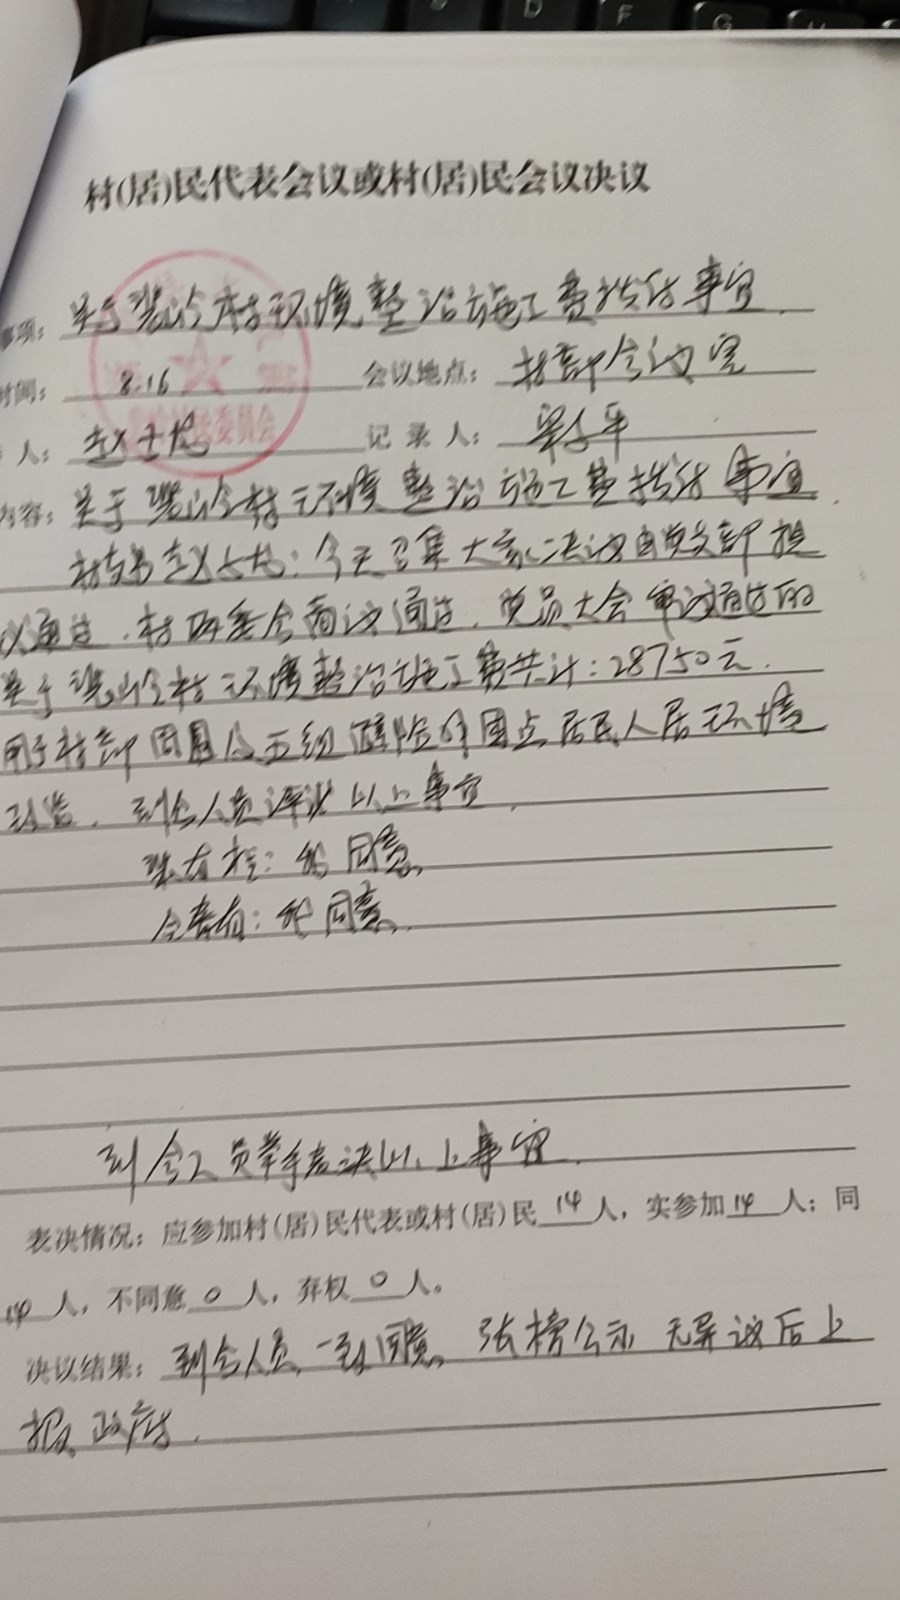 村(居)民代表会议或村(居)民会议决议
事项: 关于岭村环境整治施工费拨付事宜
时间: 8.16 会议地点: 村部会议室
人: 赵士龙 记录人: 平
内容: 关于岭村环境整治施工费拨付事宜.
村支书赵士龙: 今天召集大家决议由党支部提
议通过, 村两委会商议通过, 党员大会审议通过的
关于岭村环境整治施工费共计: 28750元.
用于村部周围及五组居民人居环境
到会人员评议以上事宜.
同意.
同意.
到会人员举手表决以上事宜.
表决情况: 应参加村(居)民代表或村(居)民14人, 实参加14人; 同
14人, 不同意0人, 弃权0人。
决议结果: 到会人员一致同意, 张榜公示无异议后上
报政府.
委员会
D
F
G